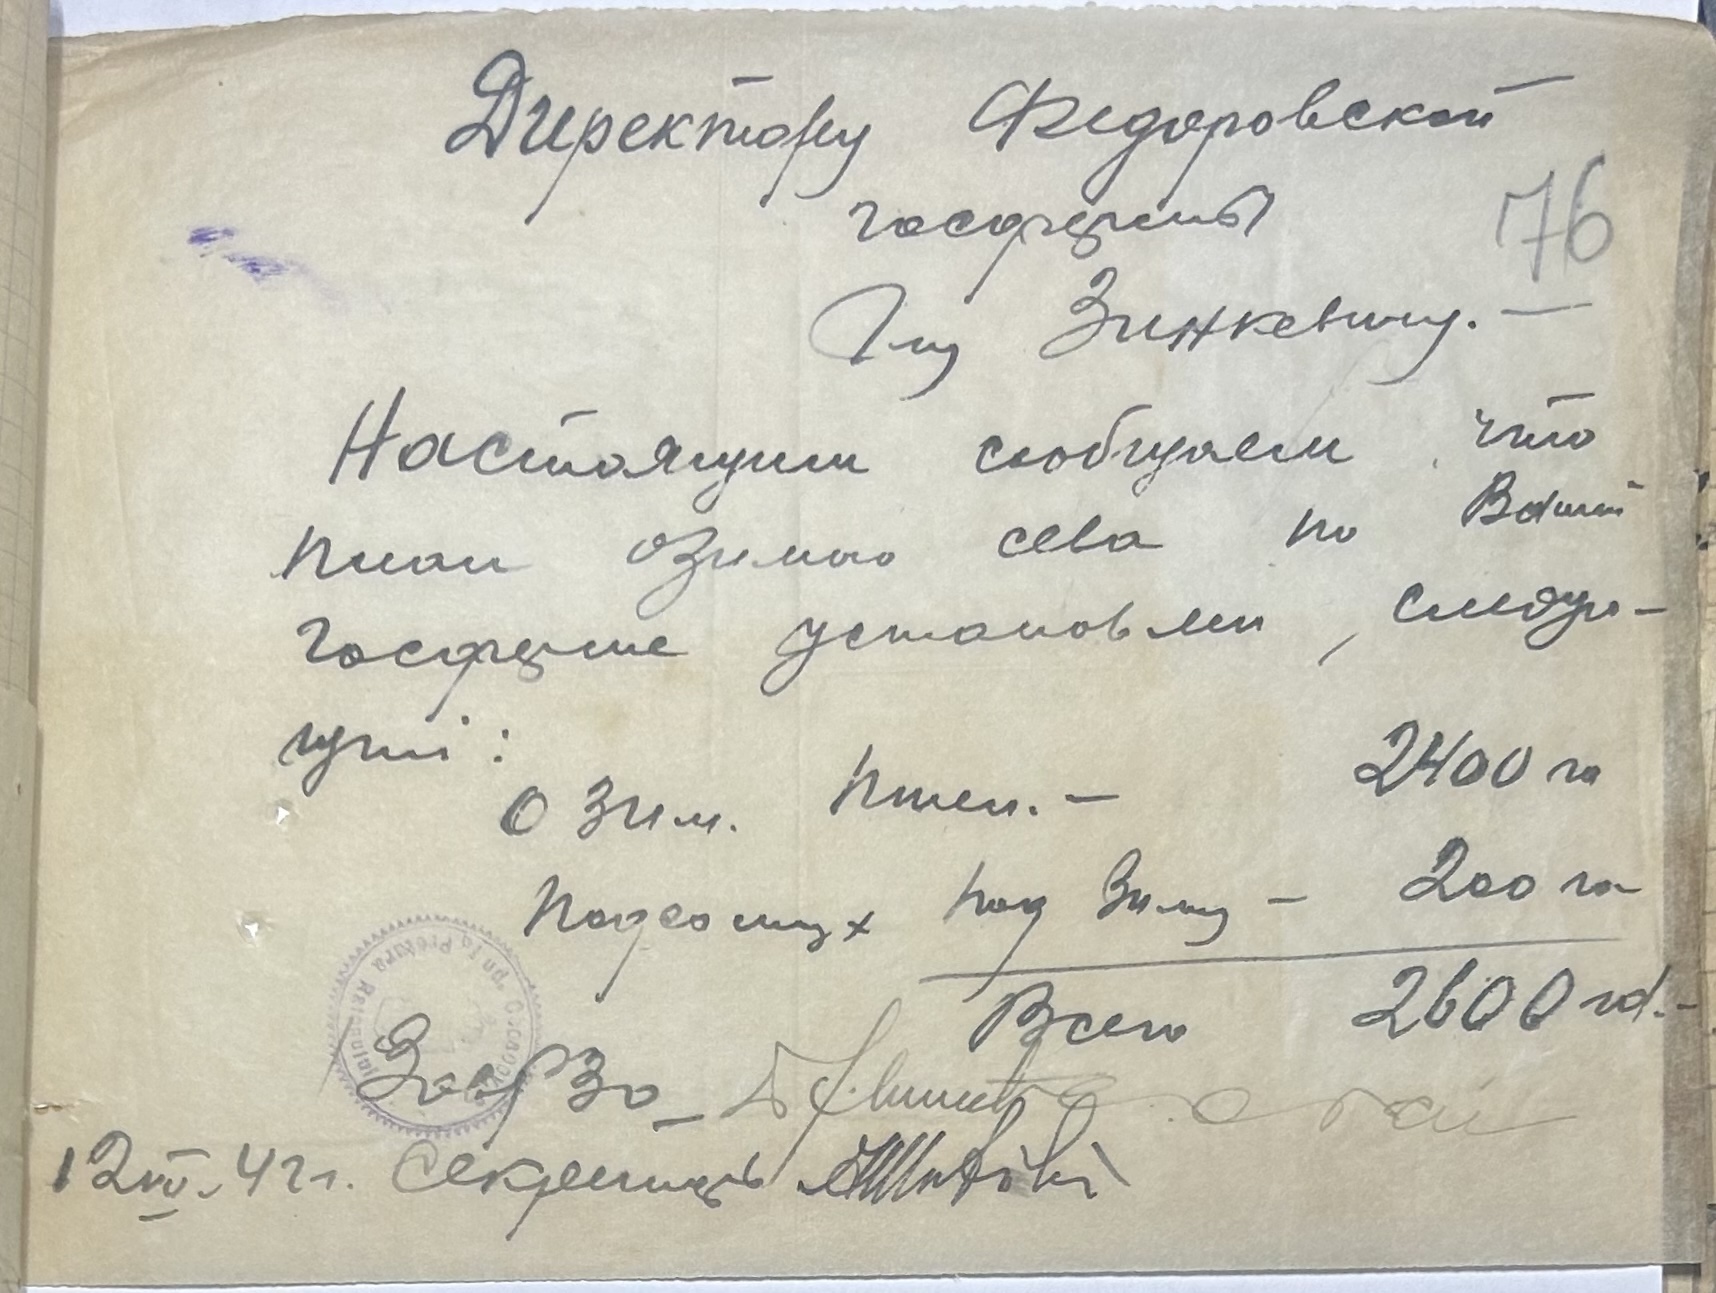 Директору Федоровской
госфермы
76
Г-ну Зинкевичу. —
Настоящим сообщаем, что
план озимого сева по Вашей
Госферме установлен, следую-
щий:
Озим. пшен. — 2400 га
Подсолнух под зиму — 200 га
Всего 2600 га. —
Завр3о —
12 42 г. Секретарь
Pretura